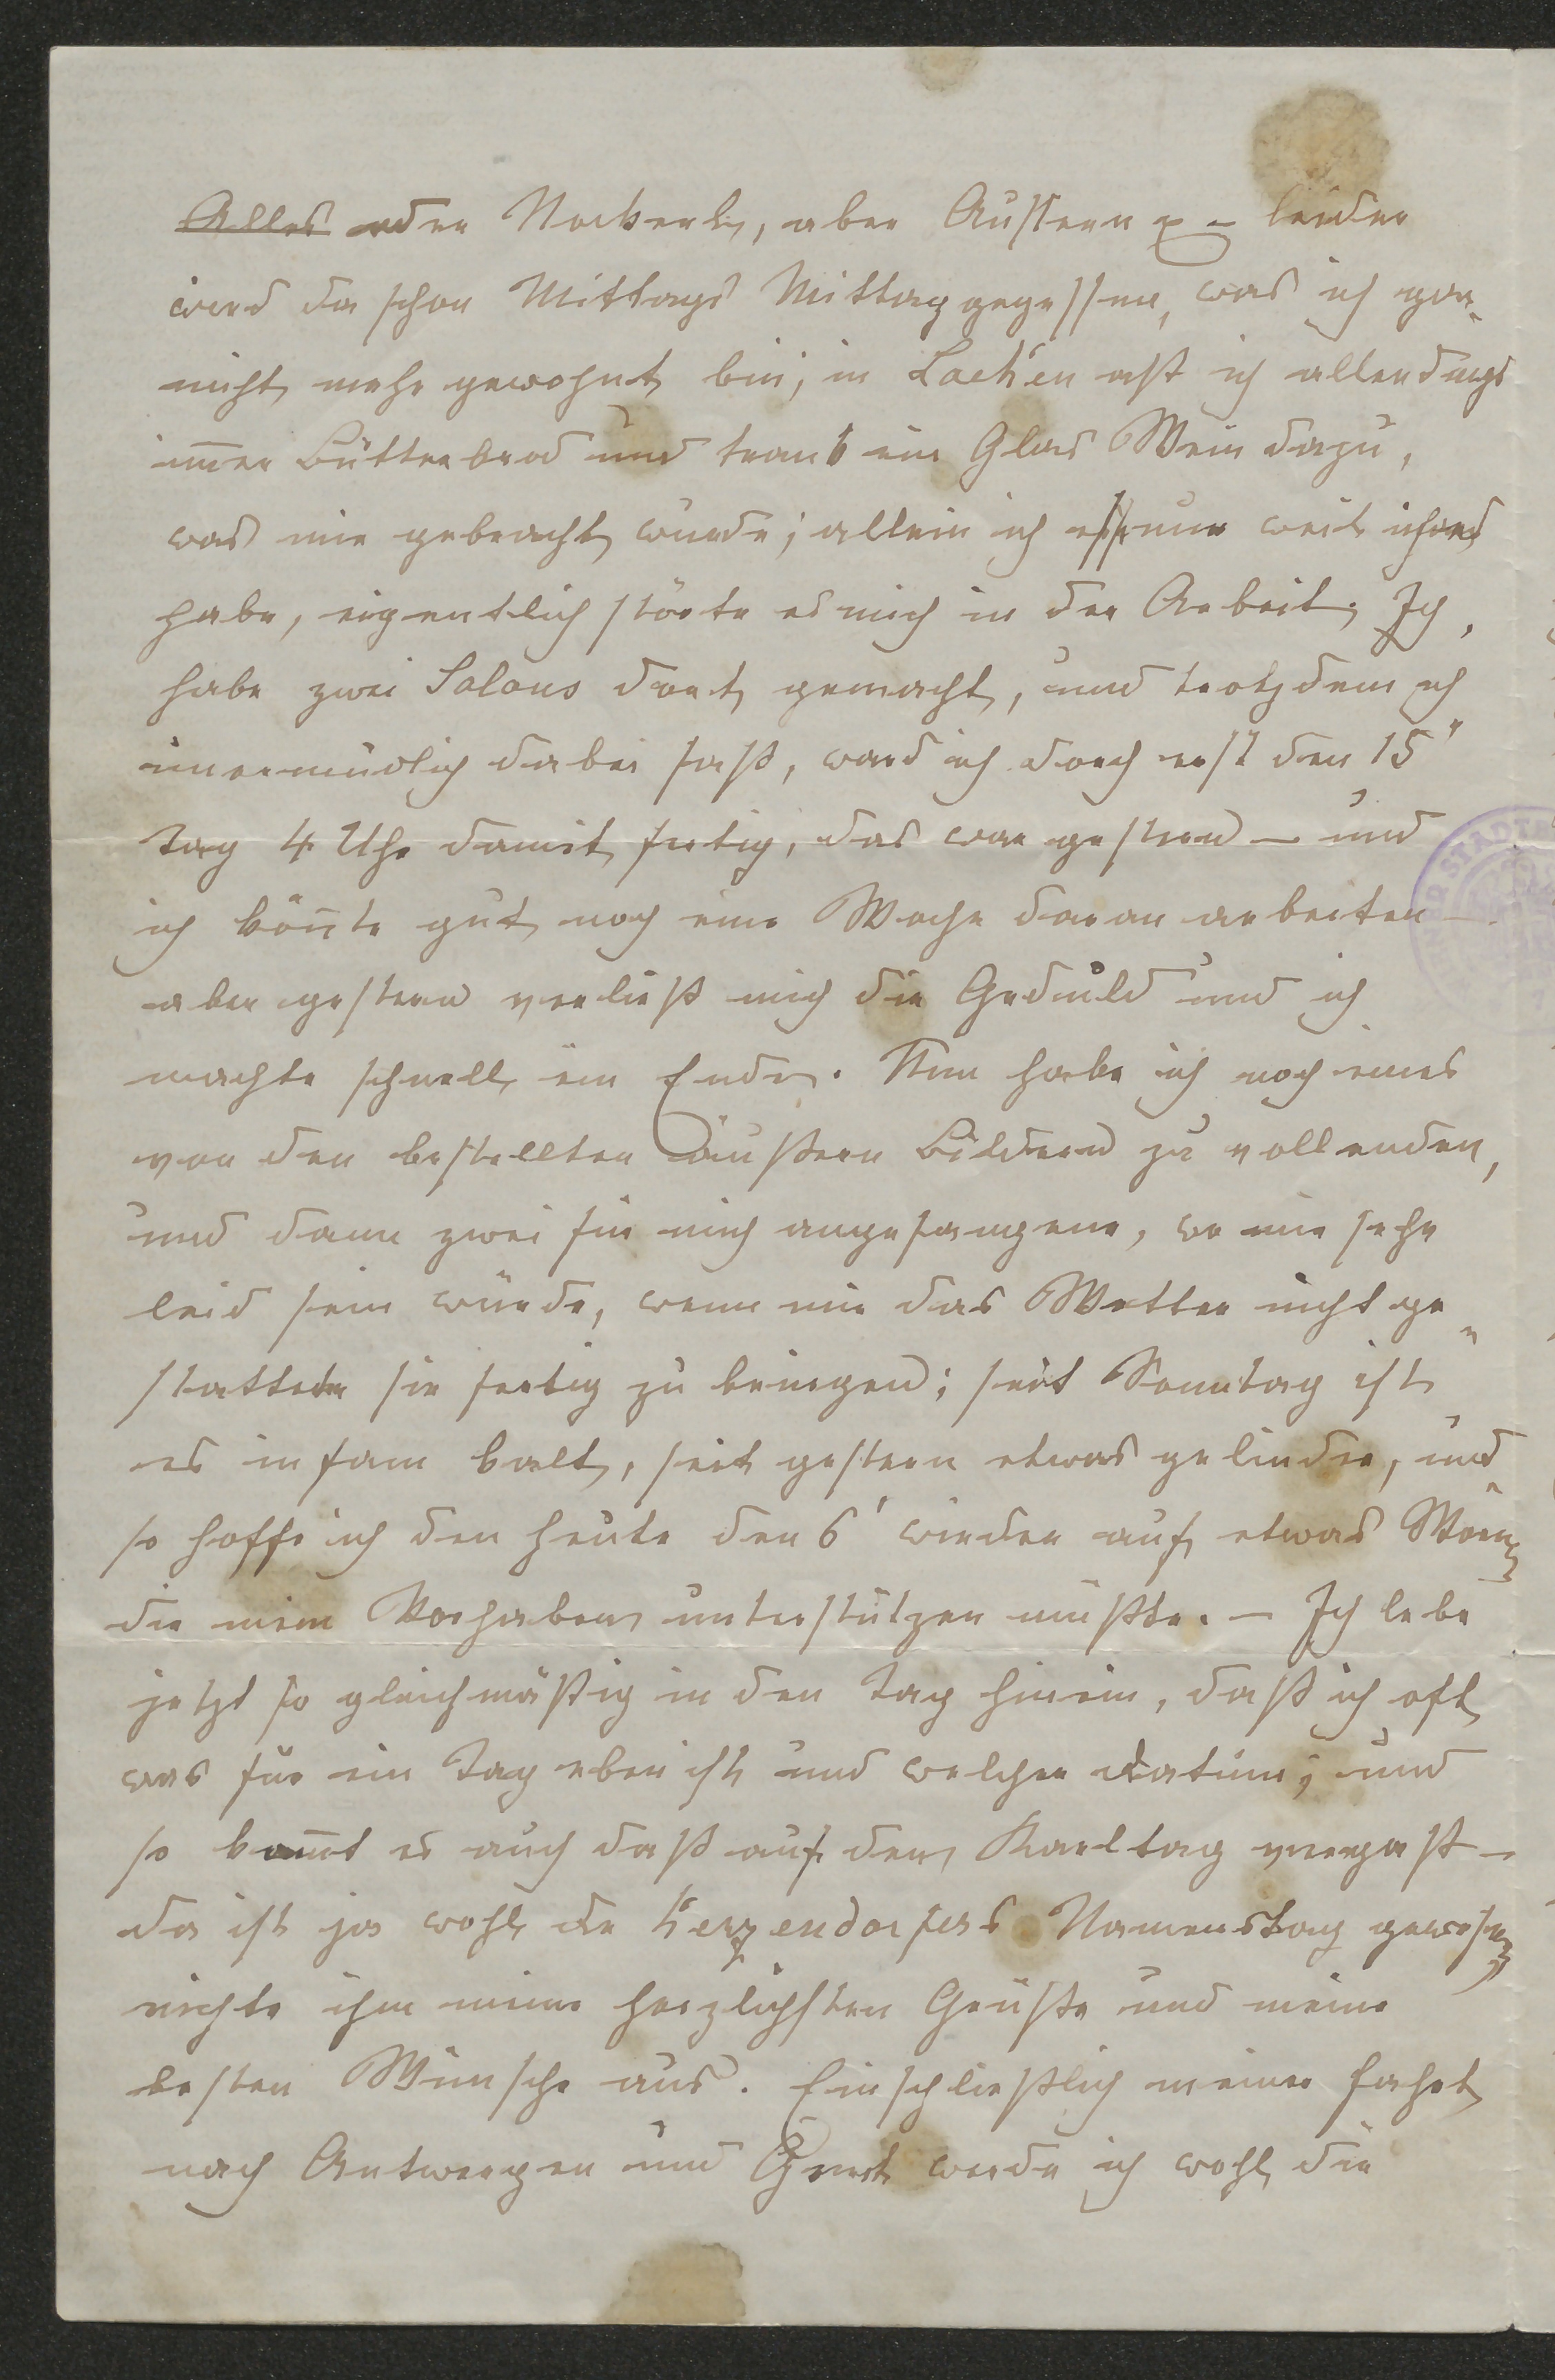 Alles oder Nockerln, aber Austern – leider
wird da schon Mittags Mittag gegessen, was ich gar
nicht mehr gewohnt bin; in Laeken aß ich allerdings
im̅er Butterbrod und trank ein Glas Wein dazu,
was mir gebracht wurde; allein ich eß nur weil ichs
habe, eigentlich störte es mich in der Arbeit. Ich
habe zwei Salons dort gemacht, und trotzdem ich
unermüdlich dabei saß, ward ich doch erst den 15'
Tag 4 Uhr damit fertig, das war gestern – und
ich kön̅te gut noch eine Woche daran arbeiten –
aber gestern verließ mich die Geduld und ich
machte schnell ein Ende. Nun habe ich noch eines
von den bestellten äußern Bildern zu vollenden,
und dann zwei für mich angefangene, wo mir sehr
leid sein würde, wenn mir das Wetter nicht ge
stattete sie fertig zu bringen; seit Sonntag ist
es infam kalt, seit gestern etwas gelinder, und
so hoffe ich den heute den 6' wieder auf etwas
die mein Vorhaben unterstützen müßte. – Ich lebe
jetzt so gleichmäßig in den Tag hinein, daß ich oft
was für ein Tag eben ist und welcher datum; und
so kom̅t es auch daß auf den Karltag vergaß –
da ist ja wohl de Herzendorfers Namenstag gewesen
richte ihm meine herzlichsten Grüße und meine
besten Wünsche aus. Einschließlich meiner Fahrt
nach Antwerpen und Gent werde ich wohl die